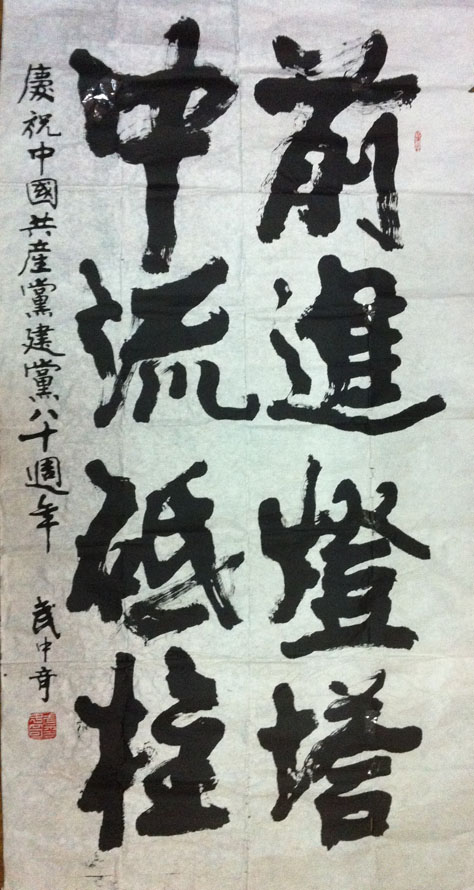 前進燈塔
中流砥柱
慶祝中國共產黨建黨八十週年
武中奇